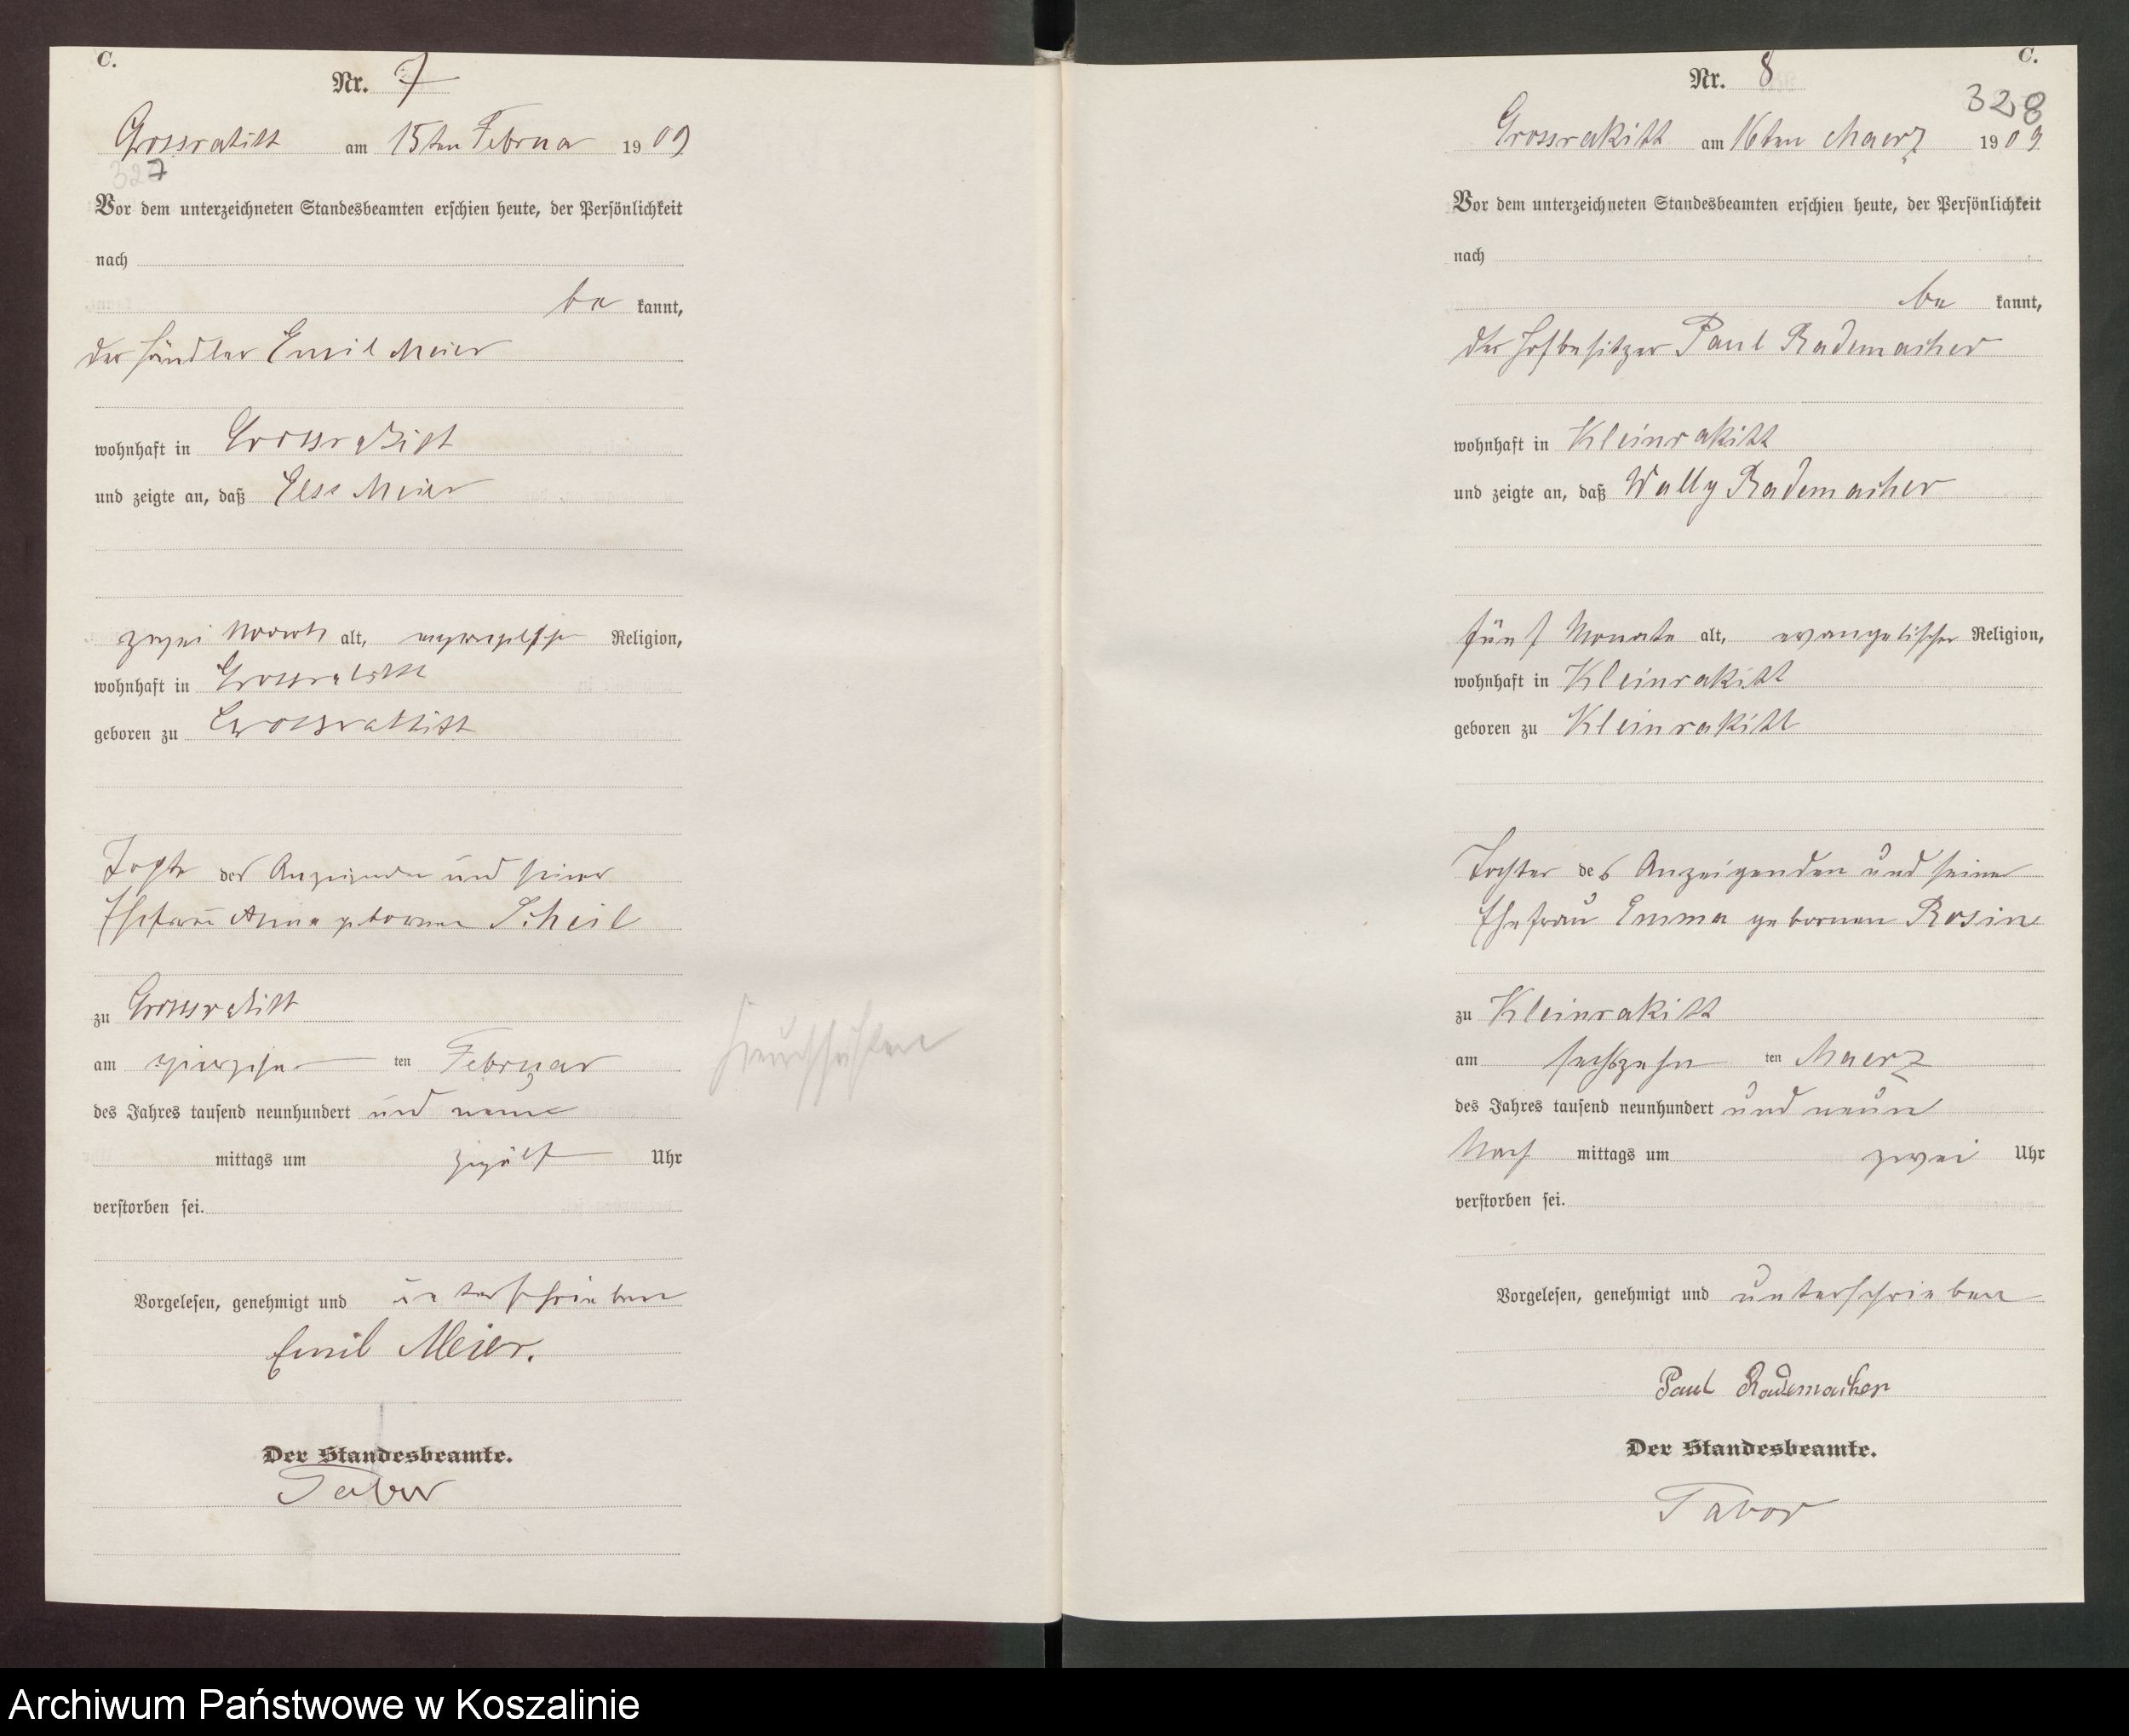 C.
Nr. 7
Grossrakitt am 15ten Februar 1909
327
Vor dem unterzeichneten Standesbeamten erschien heute, der Persönlichkeit
nach
be kannt,
der Händler Emil Meier
wohnhaft in Grossrakitt
und zeigte an, daß Else Meier
zwei alt, evangelischer Religion,
wohnhaft in Grossrakitt
geboren zu Grossrakitt
Tochter des Anzeigenden und seiner
Ehefrau Anna geborenen Scheil
zu Grossrakitt
am vierzehn ten Februar
des Jahres tausend neunhundert und neun
mittags um zwölf Uhr
verstorben sei.
Vorgelesen, genehmigt und unterschrieben
Emil Meier.
Der Standesbeamte.
Tabor
C.
Nr. 8
328
Grossrakitt am 16ten Maerz 1909
Vor dem unterzeichneten Standesbeamten erschien heute, der Persönlichkeit
nach
be kannt,
der Hofbesitzer Paul Rademacher
wohnhaft in Kleinrakitt
und zeigte an, daß Wally Rademacher
fünf Monate alt, evangelischer Religion,
wohnhaft in Kleinrakitt
geboren zu Kleinrakitt
Tochter des Anzeigenden und seiner
Ehefrau Emma gebornen Rosin
zu Kleinrakitt
am sechszehn ten Maerz
des Jahres tausend neunhundert und neun
Nach mittags um zwei Uhr
verstorben sei.
Vorgelesen, genehmigt und unterschrieben
Paul Rademacher
Der Standesbeamte.
Tabor
Archiwum Państwowe w Koszalinie